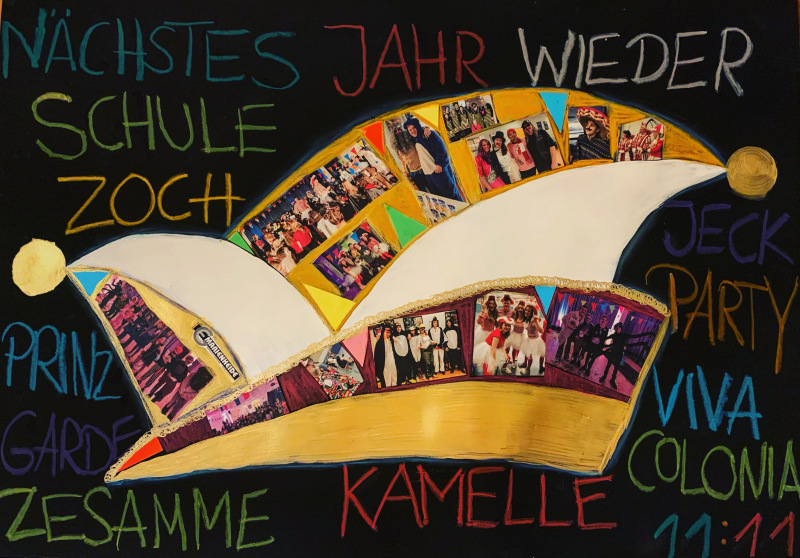 NÄCHSTES JAHR WIEDER
SCHULE
ZOCH
JECK
PARTY
PRINZ
GARDE
VIVA
COLONIA
ZESAMME
KAMELLE
11:11